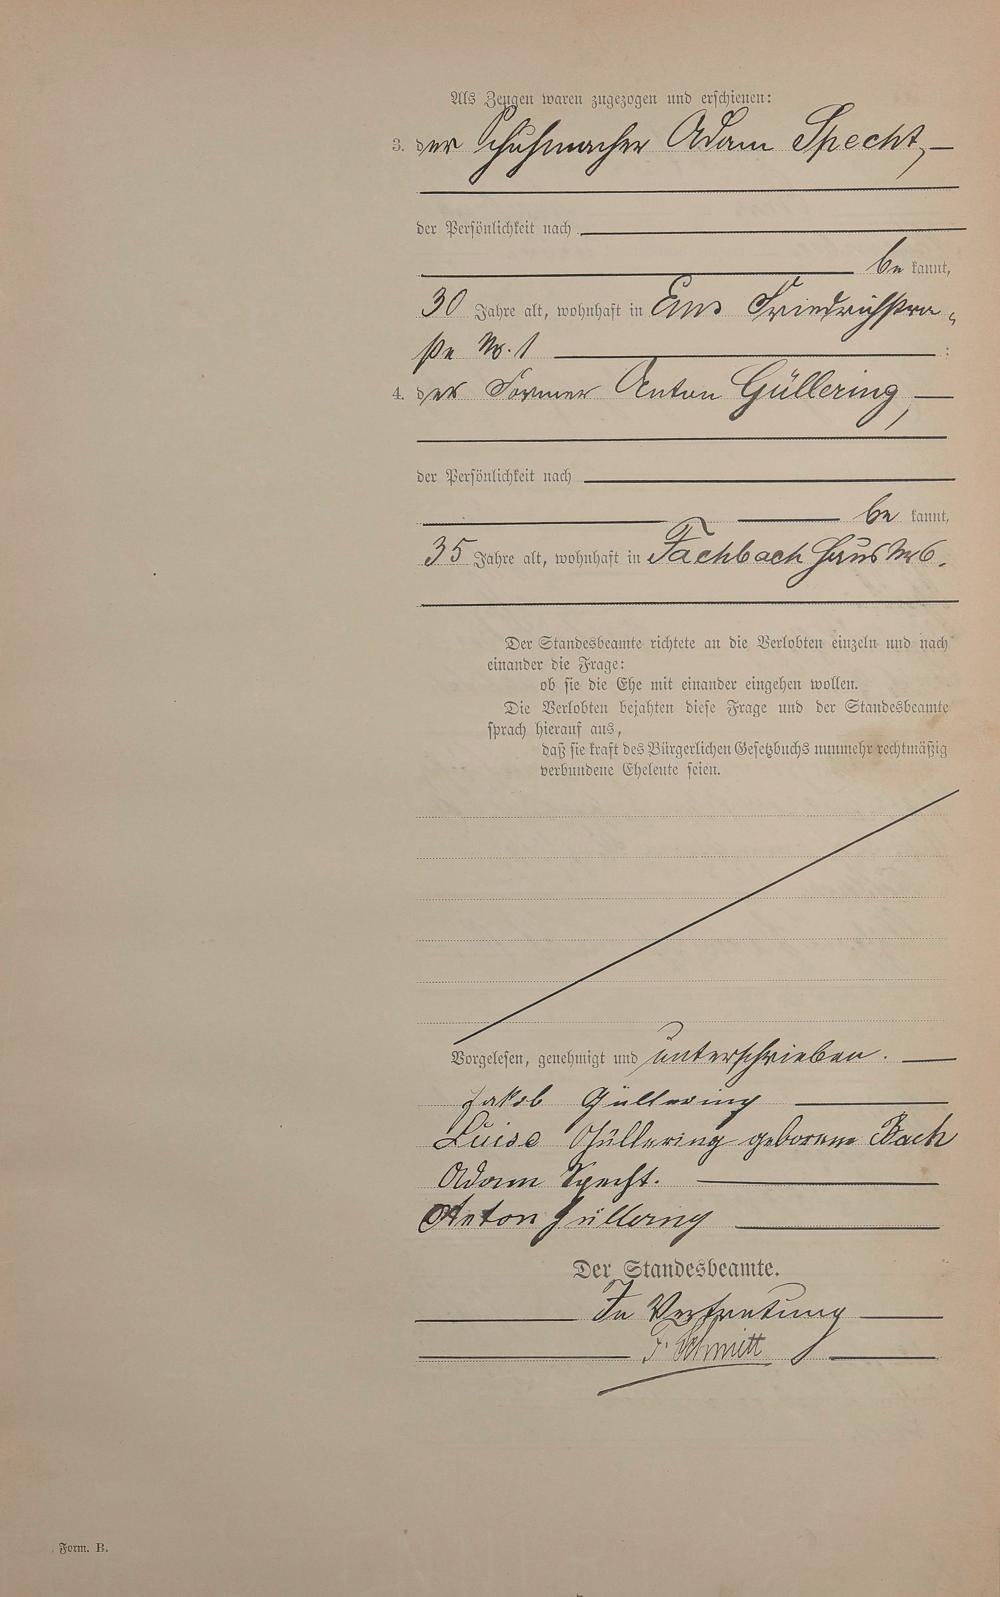 Als Zeugen waren zugezogen und erschienen:
3. der Schuhmacher Adam Specht,
der Persönlichkeit nach
be kannt,
30 Jahre alt, wohnhaft in Ems Friedrichstra„
ße No. 1 :
4. der Former Anton Güllering,
der Persönlichkeit nach
be kannt,
35 Jahre alt, wohnhaft in Fachbach Haus No 6.
Der Standesbeamte richtete an die Verlobten einzeln und nach
einander die Frage:
ob sie die Ehe mit einander eingehen wollen.
Die Verlobten bejahten diese Frage und der Standesbeamte
sprach hierauf aus,
daß sie kraft des Bürgerlichen Gesetzbuchs nunmehr rechtmäßig
verbundene Eheleute seien.
Vorgelesen, genehmigt und unterschrieben.
Jakob Güllering
Luise Güllering geborene Bach
Adam Specht.
Anton Güllering
Der Standesbeamte.
In Vertretung
F. Schmitt
Form. B.